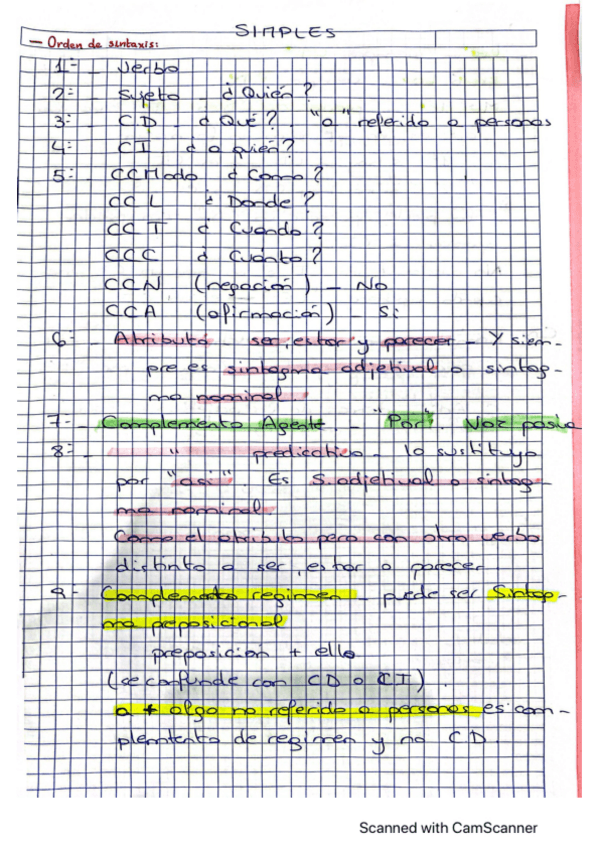 SIMPLES
— Orden de sintaxis:
1- Verbo
2- Sujeto ¿Quién?
3- CD ¿Qué? "a" referido a personas
4- CI ¿a quién?
5- CCModo ¿Como?
CCL ¿Donde?
CCT ¿Cuando?
CCC ¿Cuánto?
CCN (negación) - No
CCA (afirmación) - Si
6- Atributo - ser, estar y parecer - Y siem-
pre es sintagma adjetival o sintag-
ma nominal.
7- Complemento Agente. - "Por". Voz pasiva
8- " predicativo - lo sustituyo
por "así". Es S.adjetival o sintag-
ma nominal.
Como el atributo pero con otro verbo
distinto a ser, estar o parecer
9- Complemento regimen - puede ser Sintag-
ma preposicional
preposición + ello
(se confunde con CD o CI).
a + algo no referido a personas es com-
plemtento de regimen y no CD.
Scanned with CamScanner